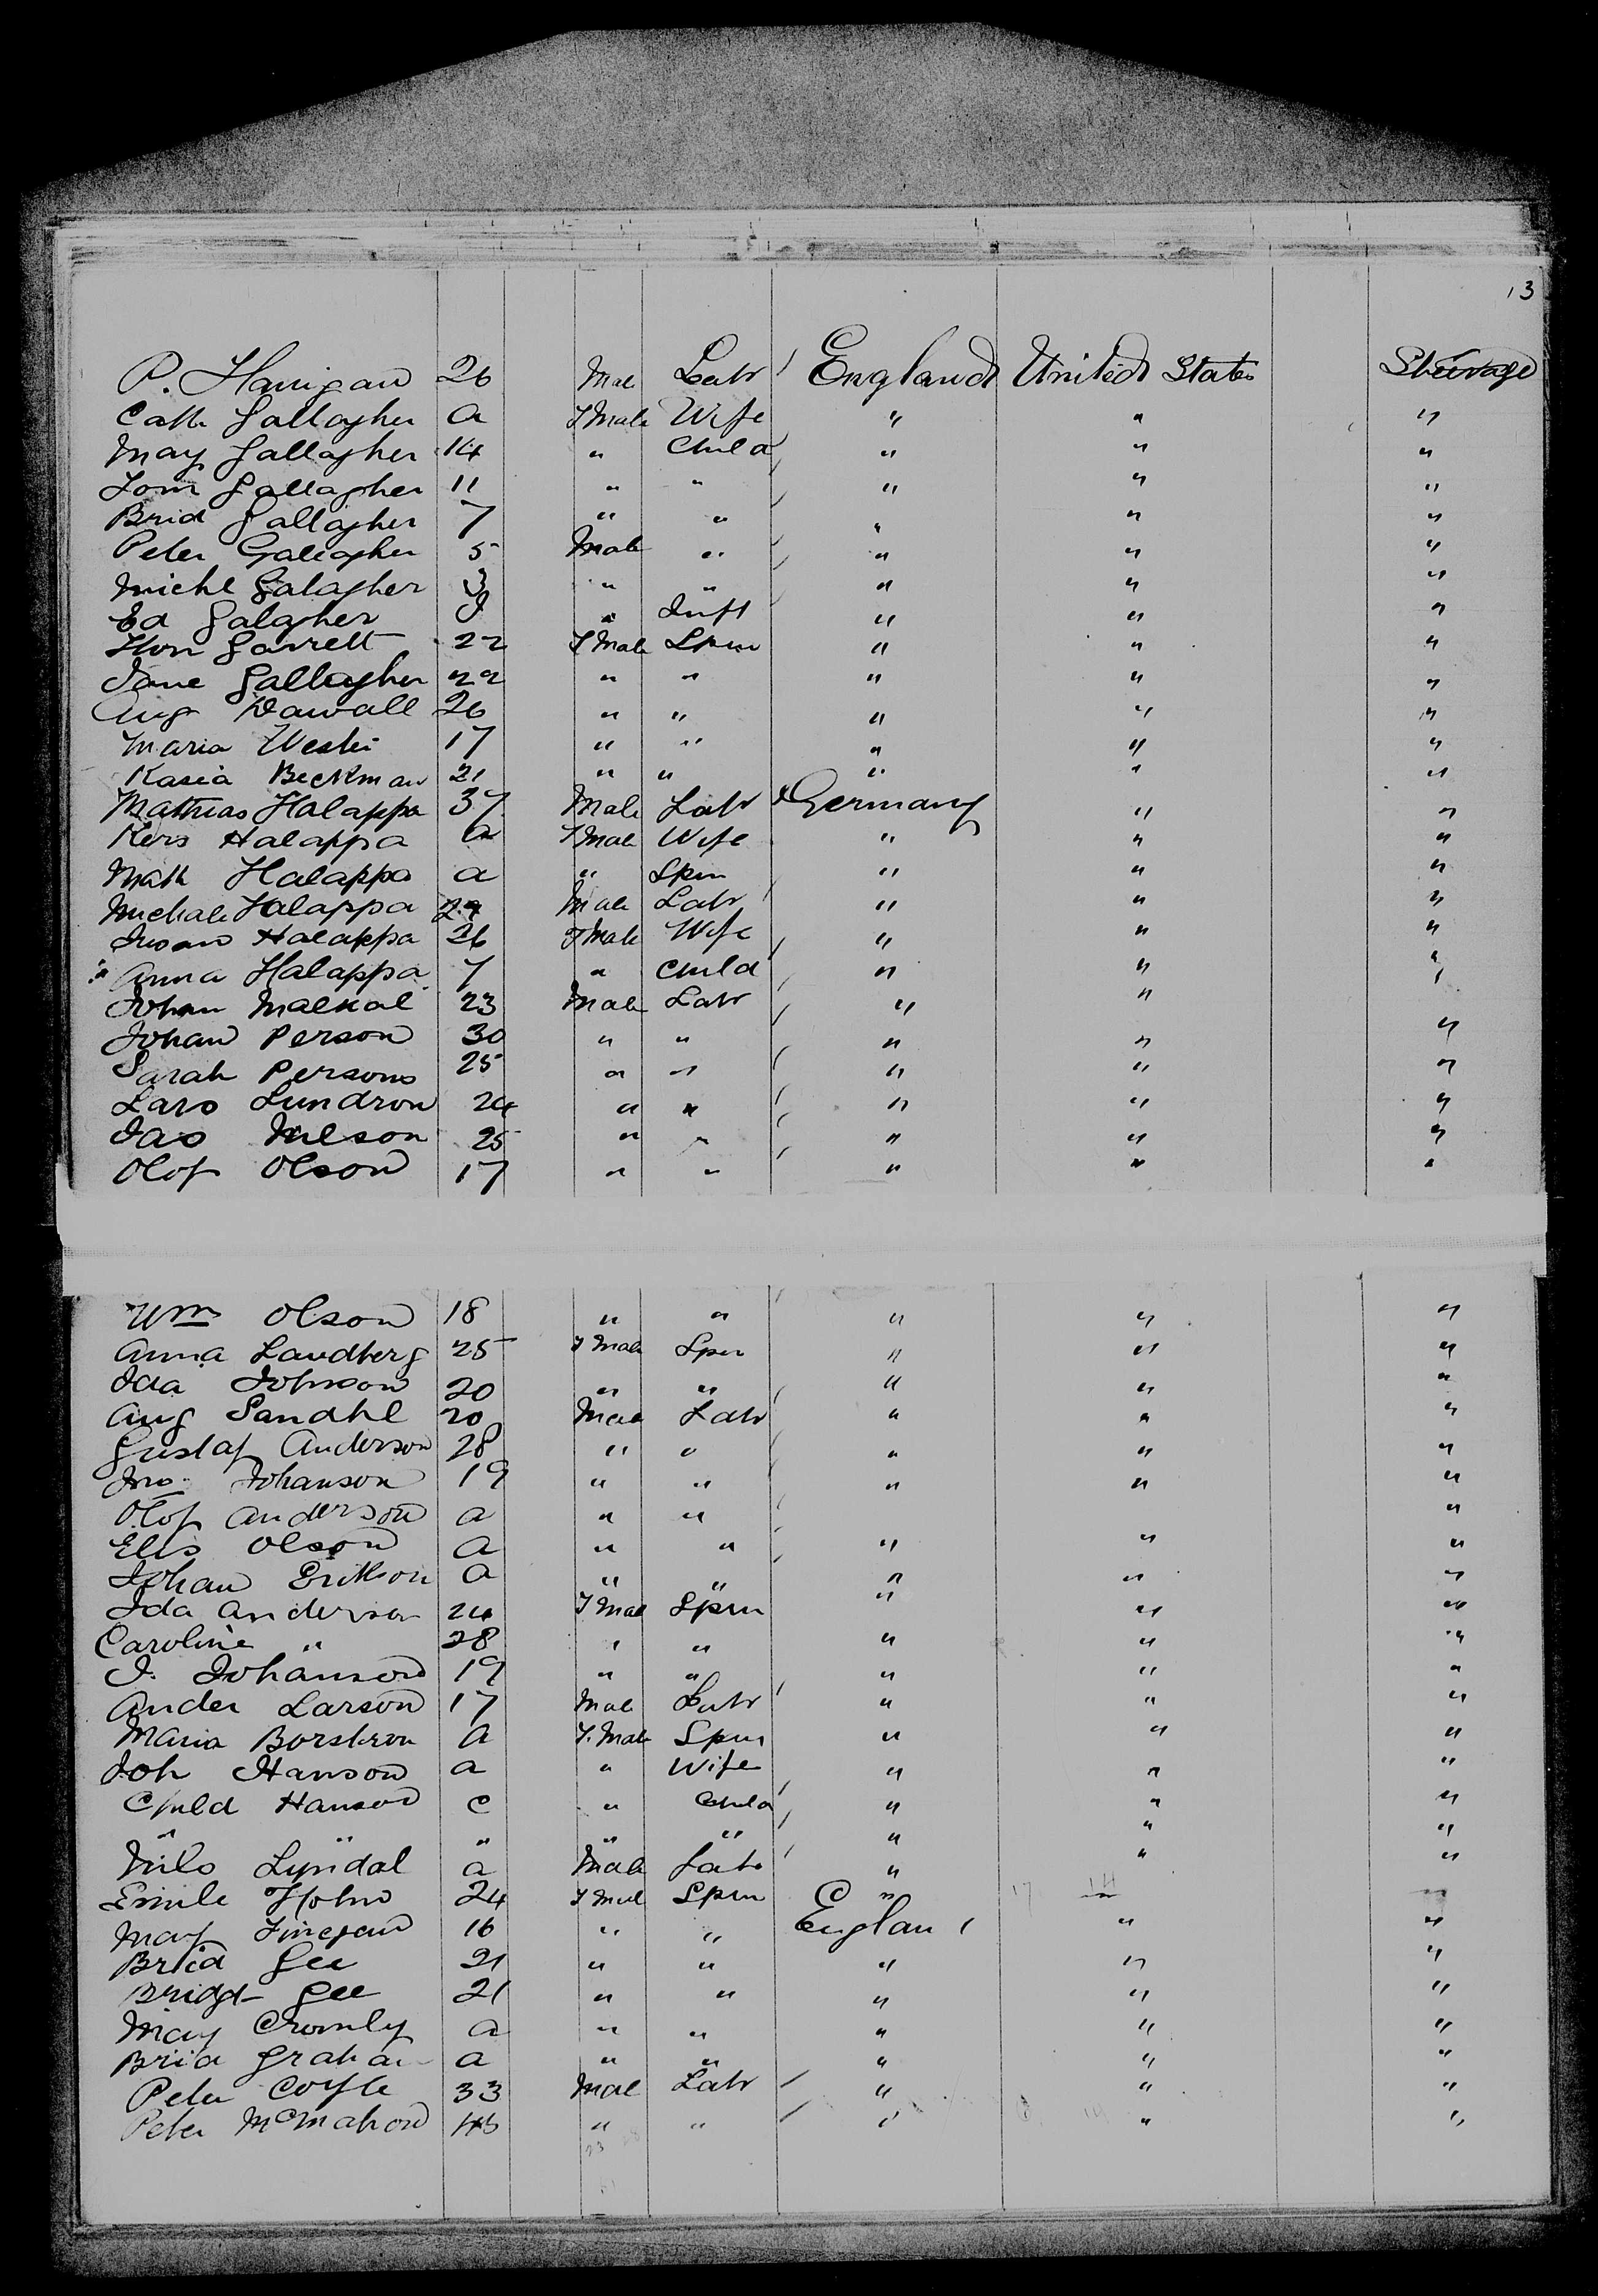 13
P. Hanigan 26 Male Labr England United States Steerage
Cath Gallagher a FMale Wife " " "
May Gallagher 14 " Child " " "
Tom Gallagher 11 " " " " "
Brid Gallagher 7 " " " " "
Peter Gallagher 5 Male " " " "
Michl Galagher 3 " " " " "
Ed Galagher I " Inft " " "
Hon Garrett 22 FMale Spin " " "
Jane Gallagher 22 " " " " "
Aug Dawall 26 " " " " "
Maria Westi 17 " " " " "
Kasia Beckman 21 " " " " "
Mathias Halappa 37 Male Labr Germany " "
Kers Halappa a FMale Wife " " "
Math Halappa a " Spin " " "
Michale Halappa 29 Male Labr " " "
Susan Halappa 26 FMale Wife " " "
Anna Halappa 7 " Child " " "
Johan Malkal 23 Male Labr " "
Johan Person 30 " " " " "
Sarah Persons 25 " " " " "
Lars Lundron 24 " " " " "
Jas Nilson 25 " " " " "
Olof Olson 17 " " " " "
Wm Olson 18 " " " " "
Anna Landberg 25 FMale Spin " " "
Ida Johnson 20 " " " " "
Aug Sandhl 20 Male Labr " " "
Gustaf Anderson 28 " " " " "
Jno Johanson 19 " " " " "
Olof Anderson a " " "
Elis Olson a " " " " "
Johan Erikson a " " " " "
Ida Anderson 24 FMal Spin " " "
Caroline " 28 " " " " "
J. Johanson 19 " " " " "
Ander Larson 17 Male Labr " " "
Maria Borstron a F.Male Spin " " "
Joh Hanson a " Wife " " "
Child Hanson c " Child " " "
" " " " " " " "
Nils Lyndal a Male Labr " " "
Emile Holm 24 FMal Spin " "
May Finegan 16 " " England " "
Brid Gee 21 " " " " "
Bridgt Gee 21 " " " " "
May Cromly a " " " " "
Brid Graham a " " " " "
Peter Coyle 33 Male Labr " " "
Peter McMahon 45 " " " " "